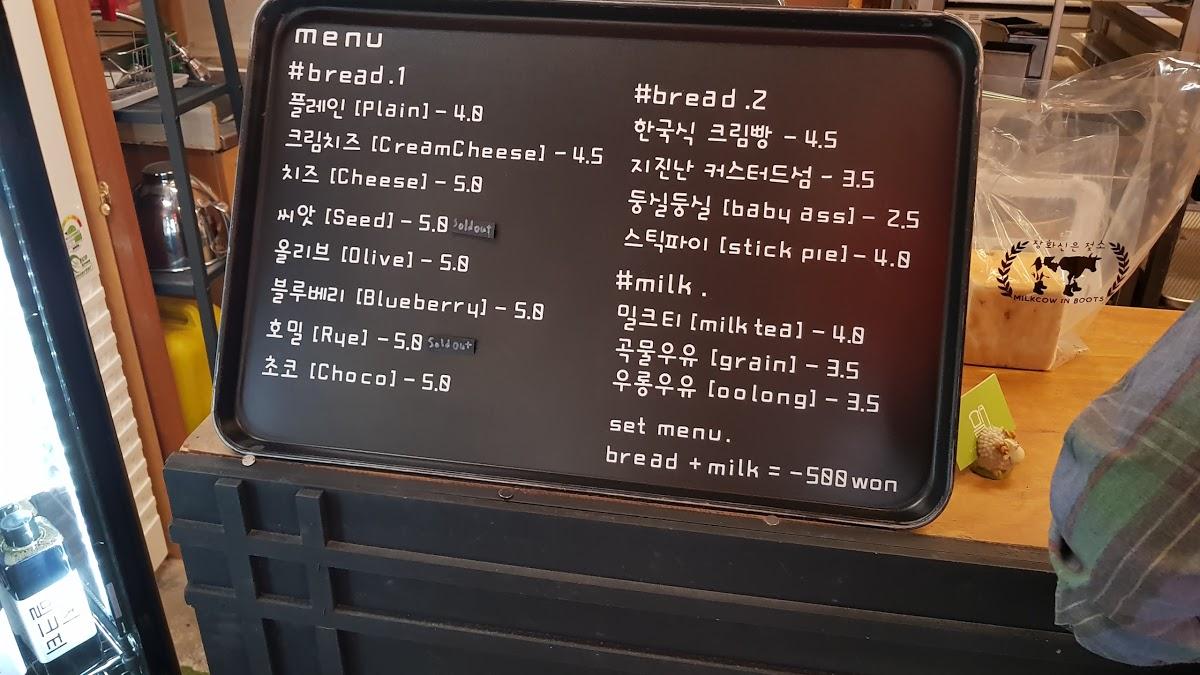 menu
#bread.1
플레인 [Plain] - 4.0
크림치즈 [CreamCheese] - 4.5
치즈 [Cheese] - 5.0
씨앗 [Seed] - 5.0 Sold out
올리브 [Olive] - 5.0
블루베리 [Blueberry] - 5.0
호밀 [Rye] - 5.0 Sold out
초코 [Choco] - 5.0
#bread.2
한국식 크림빵 - 4.5
지진난 커스터드섬 - 3.5
둥실둥실 [baby ass] - 2.5
스틱파이 [stick pie] - 4.0
#milk.
밀크티 [milk tea] - 4.0
곡물우유 [grain] - 3.5
우롱우유 [oolong] - 3.5
set menu.
bread + milk = -500won
장화신은 젖소
MILKCOW IN BOOTS
밀크티